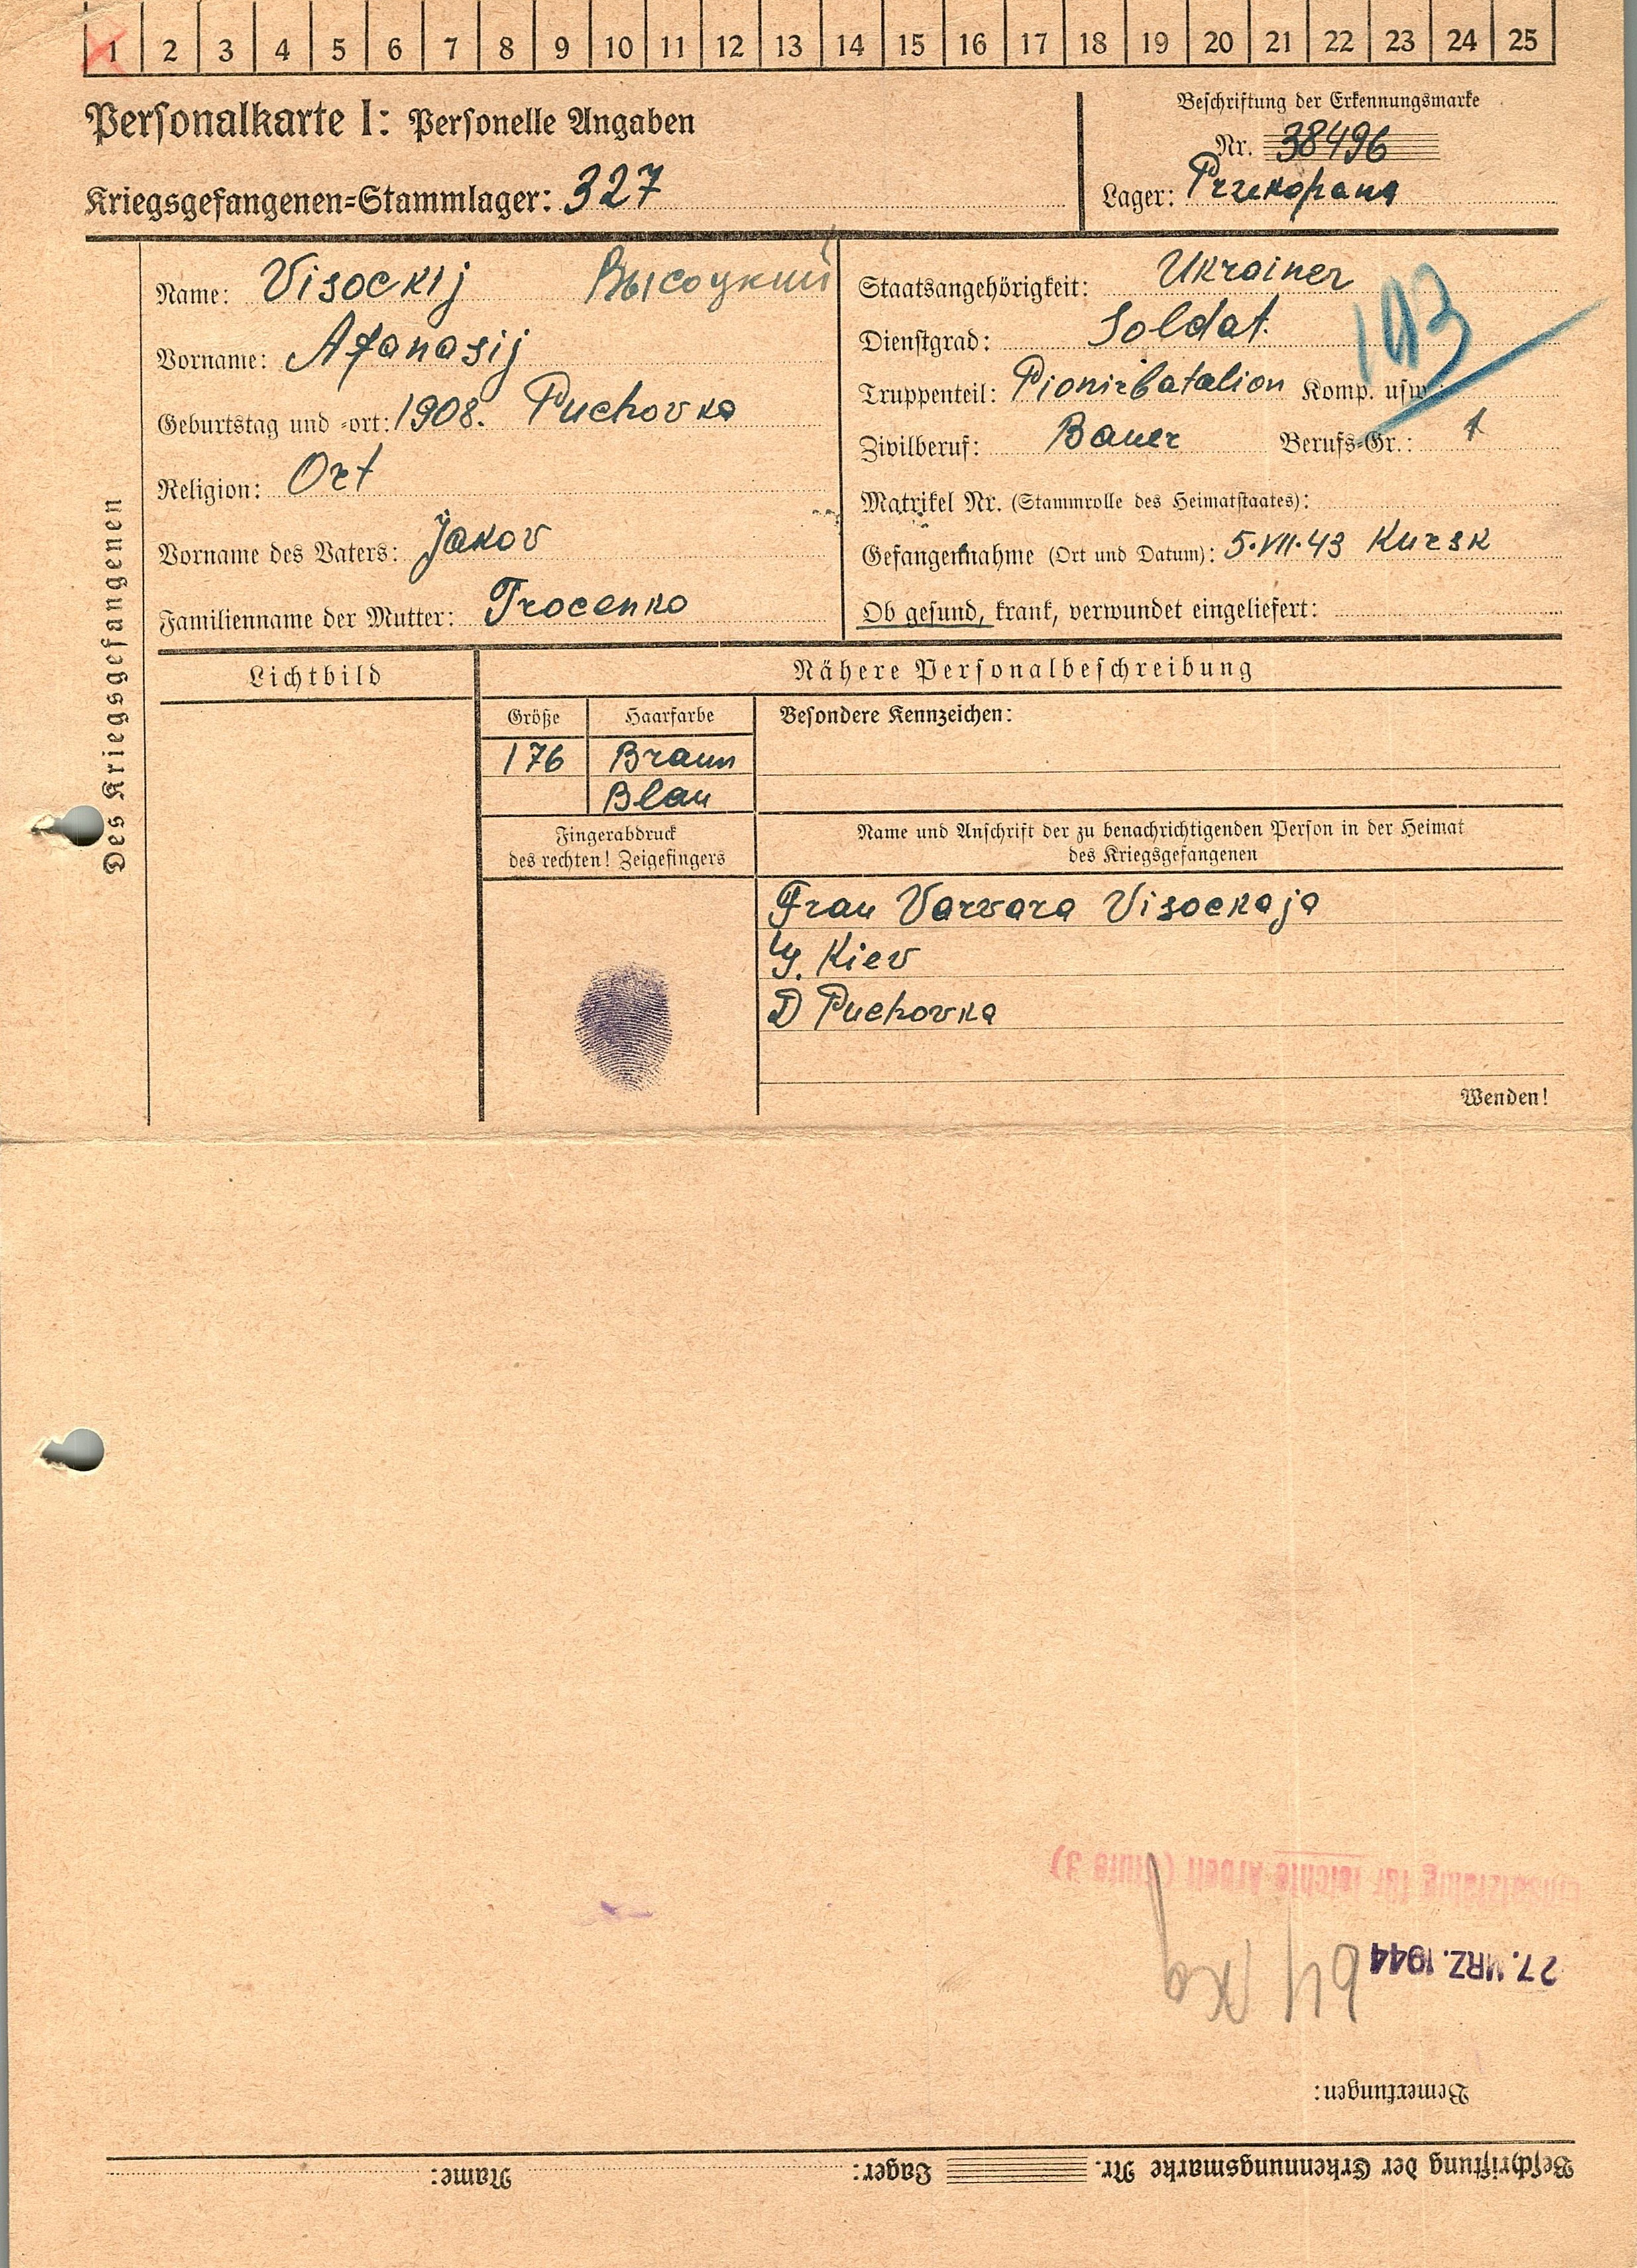 1 2 3 4 5 6 7 8 9 10 11 12 13 14 15 16 17 18 19 20 21 22 23 24 25
Personalkarte I: Personelle Angaben
Kriegsgefangenen=Stammlager: 327
Beschriftung der Erkennungsmarke
Nr. 38496
Lager: Przekopana
Des Kriegsgefangenen
Name: Visockij Высоцкий
Vorname: Afanasij
Geburtstag und =ort: 1908. Puchovka
Religion: Ort
Vorname des Vaters: Jakov
Familienname der Mutter: Trocenko
Staatsangehörigkeit: Ukrainer
Dienstgrad: Soldat.
Truppenteil: Pionirbatalion Komp. usw.:
Zivilberuf: Bauer Berufs=Gr.: 1
Matrikel Nr. (Stammrolle des Heimatstaates):
Gefangennahme (Ort und Datum): 5.VII.43 Kursk
Ob gesund, krank, verwundet eingeliefert:
Lichtbild
Nähere Personalbeschreibung
Größe Haarfarbe Besondere Kennzeichen:
176 Braun
Blau
Fingerabdruck
des rechten! Zeigefingers
Name und Anschrift der zu benachrichtigenden Person in der Heimat
des Kriegsgefangenen
Frau Varvara Visockaja
G. Kiev
D Puchovka
Wenden!
Beschriftung der Erkennungsmarke Nr. Lager: Name:
Bemerkungen:
27. MRZ. 1944 64 kg
einsatzfähig für leichte Arbeit (Stufe 3)